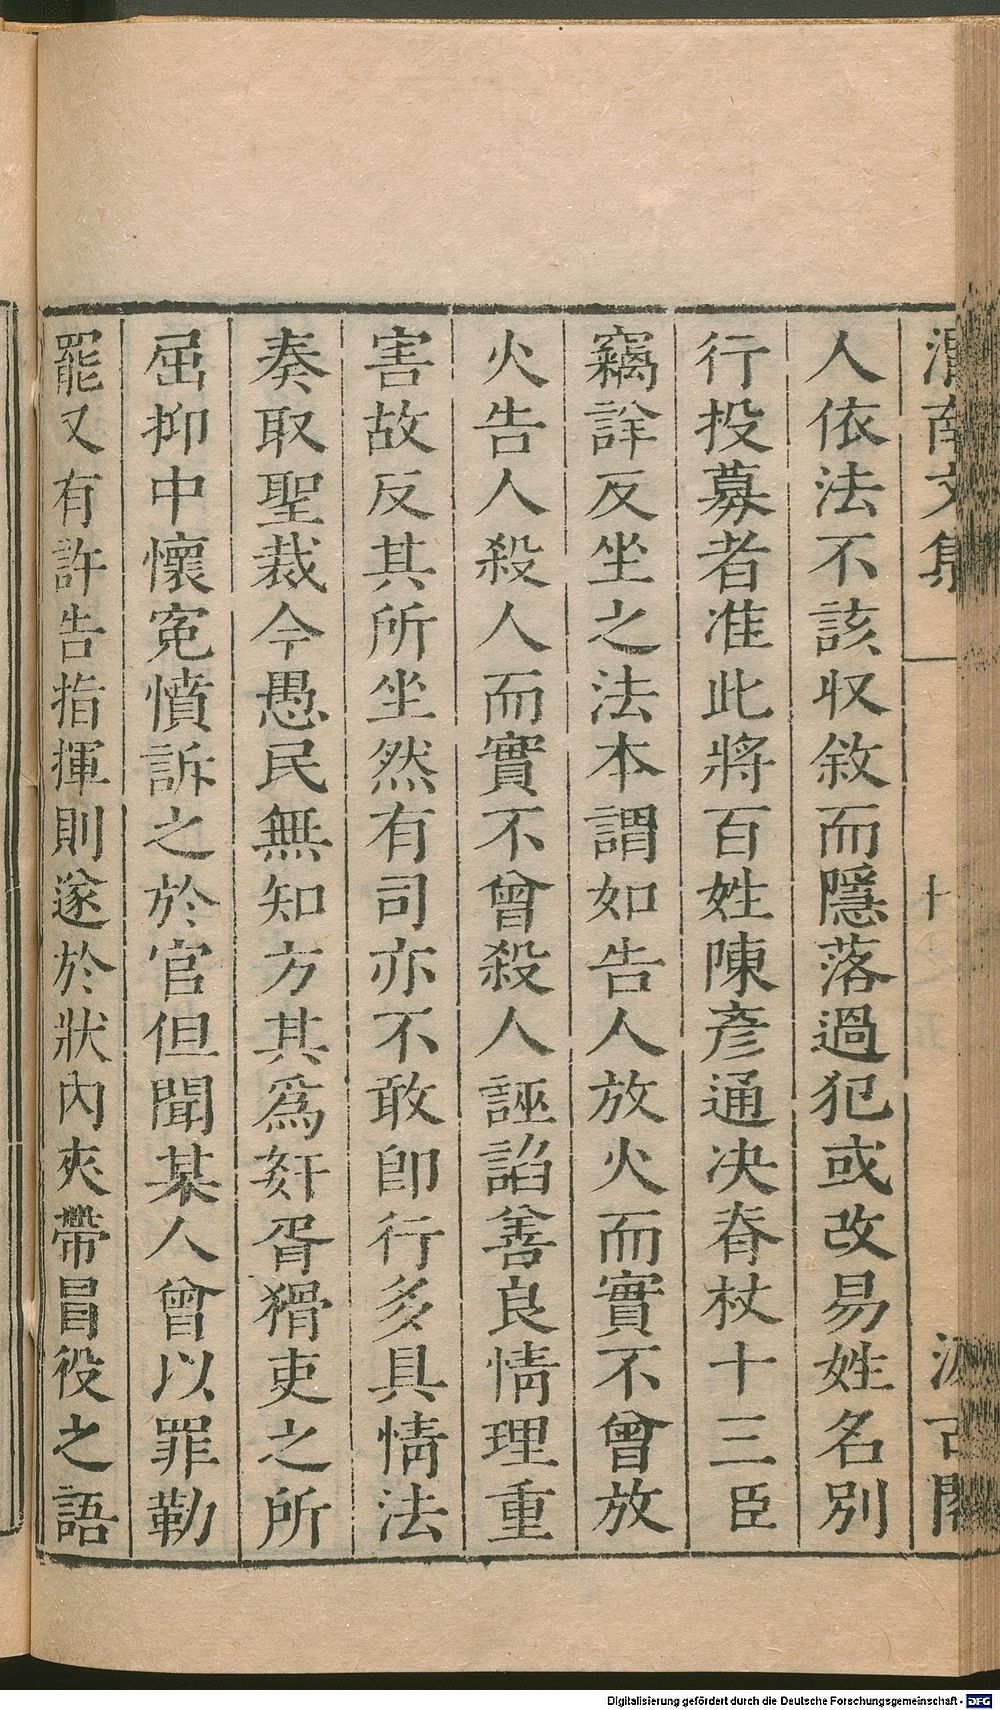 渭南文集 十 汲古閣
人依法不該収敘而隱落過犯或改易姓名别
行投募者准此將百姓陳彥通决脊杖十三臣
竊詳反坐之法本謂如告人放火而實不曾放
火告人殺人而實不曾殺人誣諂善良情理重
害故反其所坐然有司亦不敢卽行多具情法
奏取聖裁今愚民無知方其爲姦胥猾吏之所
屈抑中懷寃憤訴之於官但聞某人曾以罪勒
罷又有許告指揮則遂於狀內夾帶冒役之語
Digitalisierung gefördert durch die Deutsche Forschungsgemeinschaft - DFG